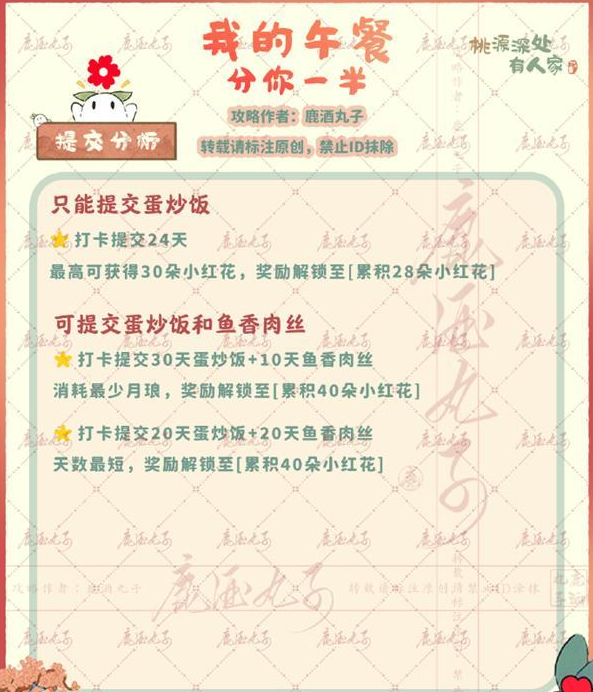 我的午餐
分你一半
桃源深处
有人家
攻略作者：鹿酒丸子
转载请标注原创，禁止ID抹除
提交分析
只能提交蛋炒饭
打卡提交24天
最高可获得30朵小红花，奖励解锁至[累积28朵小红花]
可提交蛋炒饭和鱼香肉丝
打卡提交30天蛋炒饭+10天鱼香肉丝
消耗最少月琅，奖励解锁至[累积40朵小红花]
打卡提交20天蛋炒饭+20天鱼香肉丝
天数最短，奖励解锁至[累积40朵小红花]
鹿酒丸子
攻略作者：鹿酒丸子